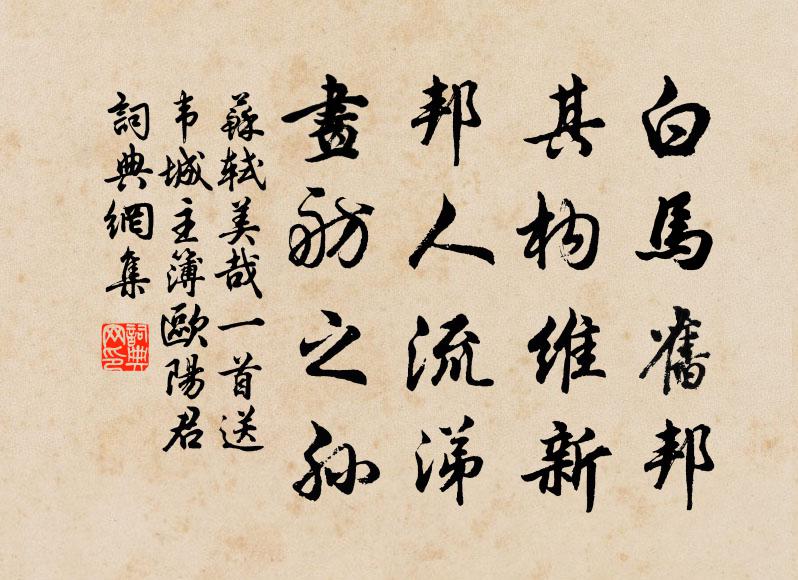 白馬舊邦
其构維新
邦人流涕
畫舫之孙
蘇軾美哉一首送
韦城主簿歐陽君
詞典網集
詞典網印